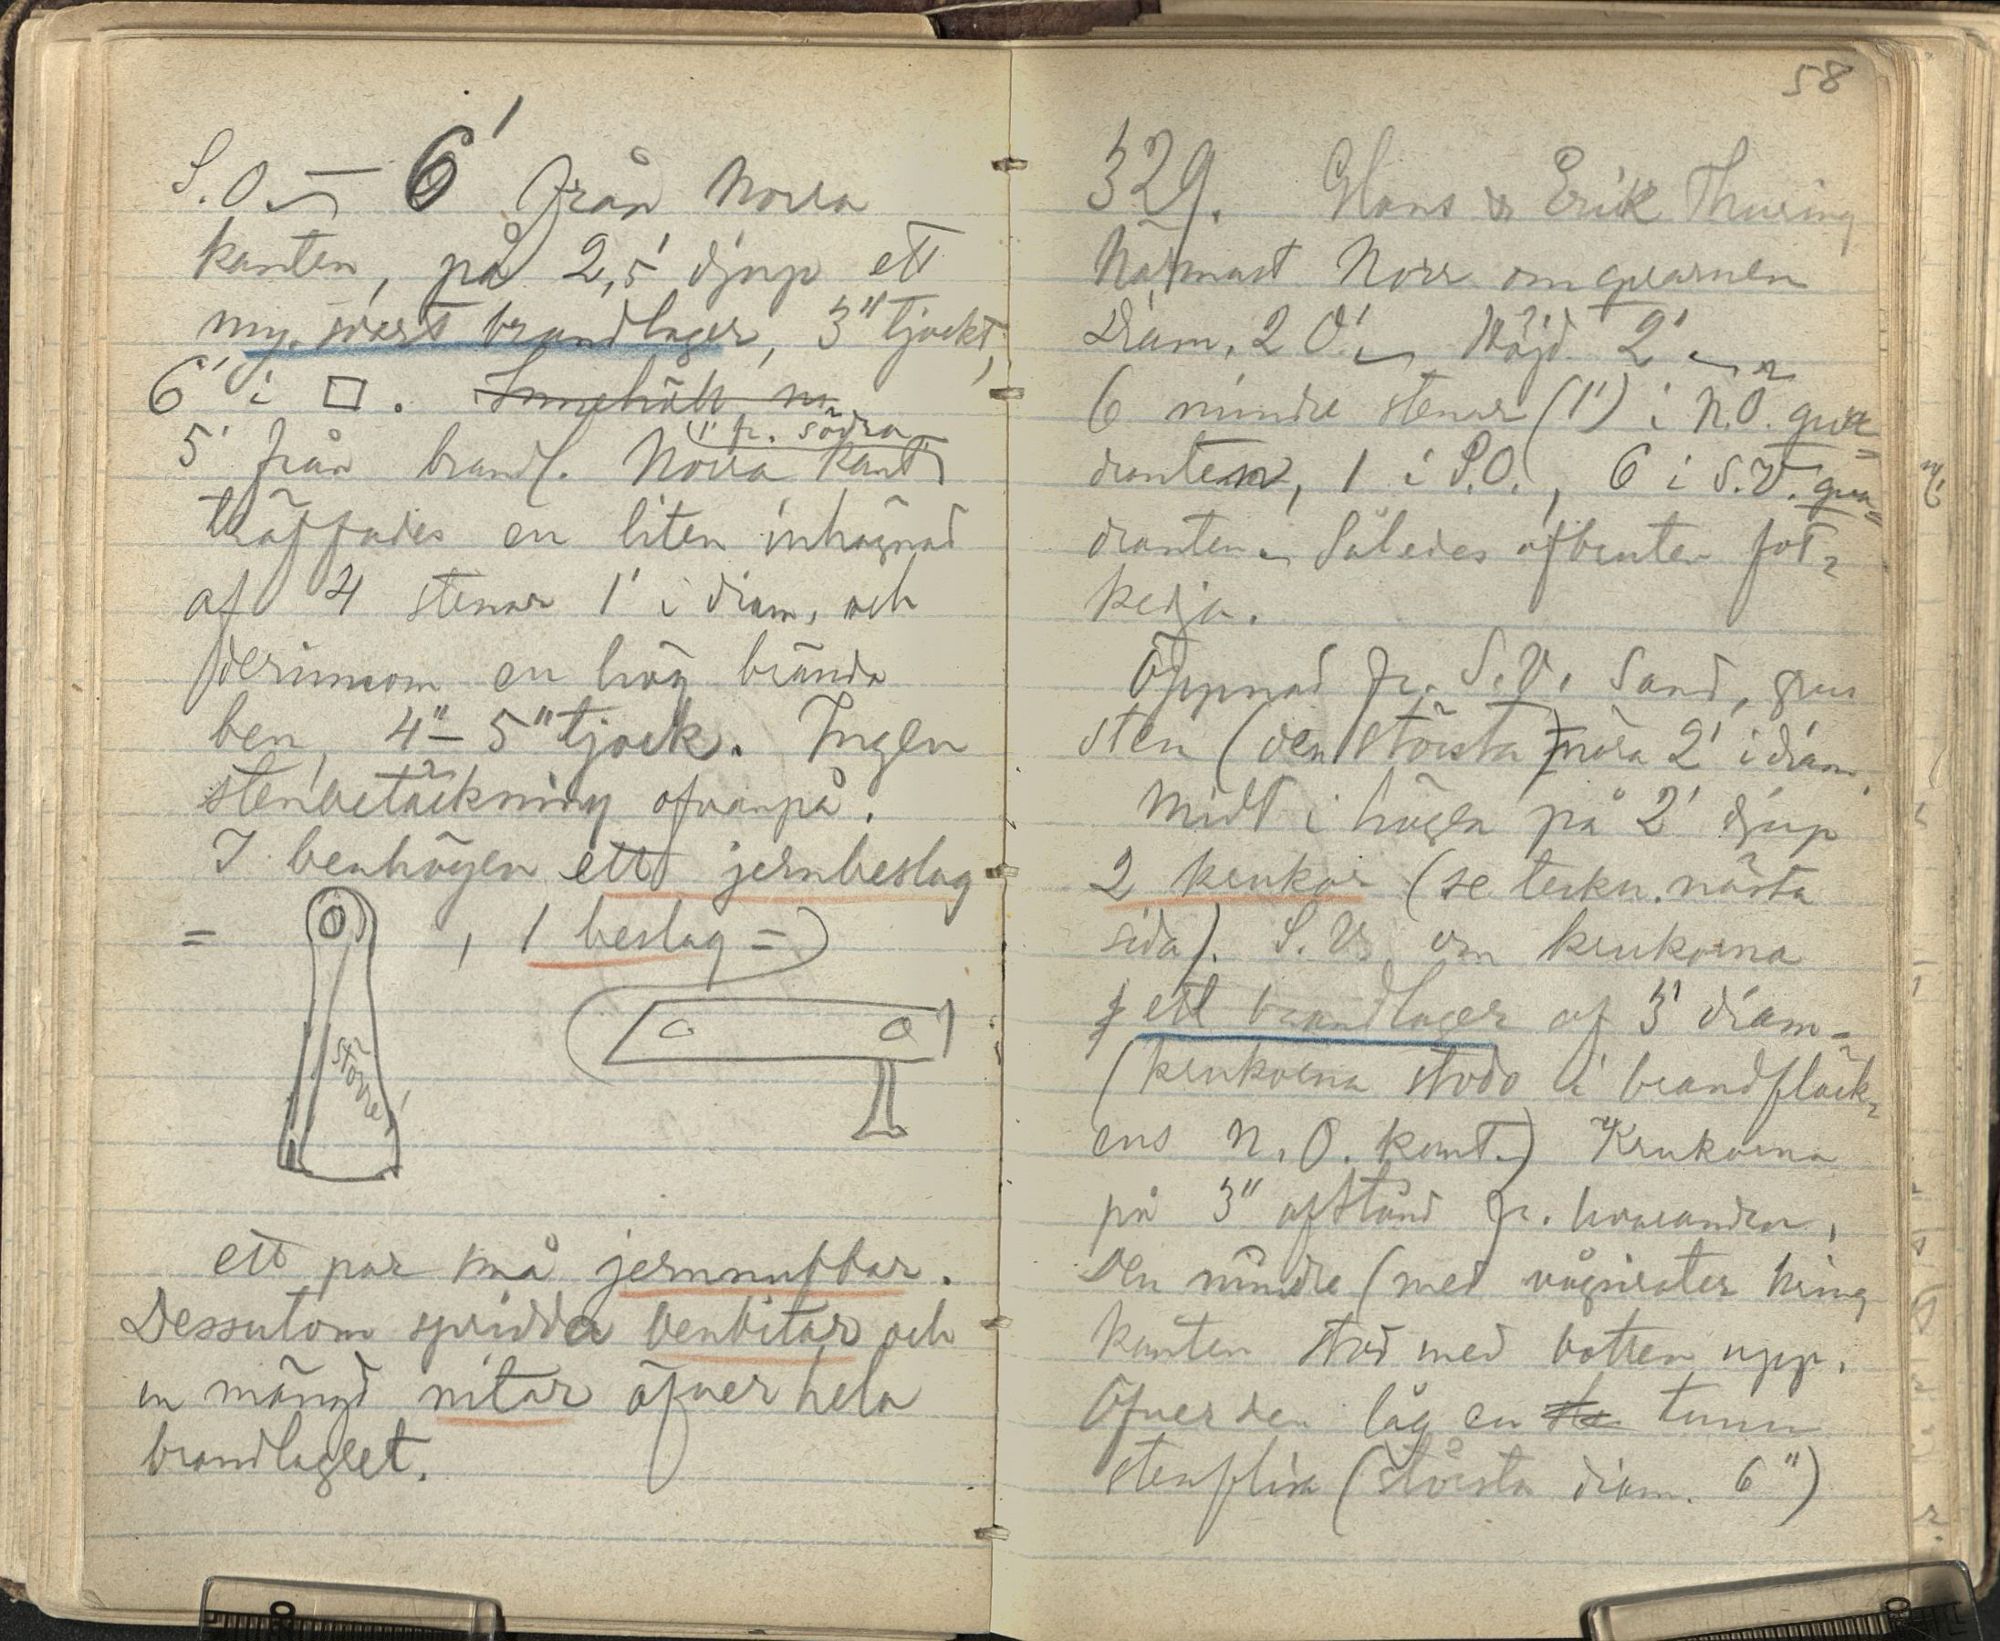 S.O. – 6' från Norra
kanten, på 2,5' djup ett
my. svart brandlager, 3" tjockt,
6' i □. Innehöll
(1' fr. södra
5' från brandl. Norra kant)
träffades en liten inhägnad
af 4 stenar 1' i diam, och
derinnom en hög brända
ben, 4"–5" tjock. Ingen
stenbetäckning ofvanpå.
I benhögen ett jernbeslag
= , 1 beslag =
större
ett par små jernnubbar.
Dessutom spridda benbitar och
en mängd nitar öfver hela
brandlagret.
58
329. Hans & Erik Thuring
Närmast Norr om qvarnen
Diam. 20'. Höjd 2'.
6 mindre stenar (1') i N.O. qva=
dranten, 1 i S.O., 6 i S.V. qva=
dranten. Således afbruten fot=
kedja.
Öppnad fr. S.V. Sand, grus
sten (den största nära 2' i diam.
Midt i högen på 2' djup
2 krukor (se teckn. nästa
sida). S.V. om krukorna
ett brandlager af 3' diam=
(krukorna stodo i brandfläck=
ens N.O. kant.) Krukorna
på 3" afstånd fr. hvarandra,
Den mindre (med vågräter kring
kanten stod med botten upp.
Öfver den låg en tunn
stenflisa (största diam. 6")